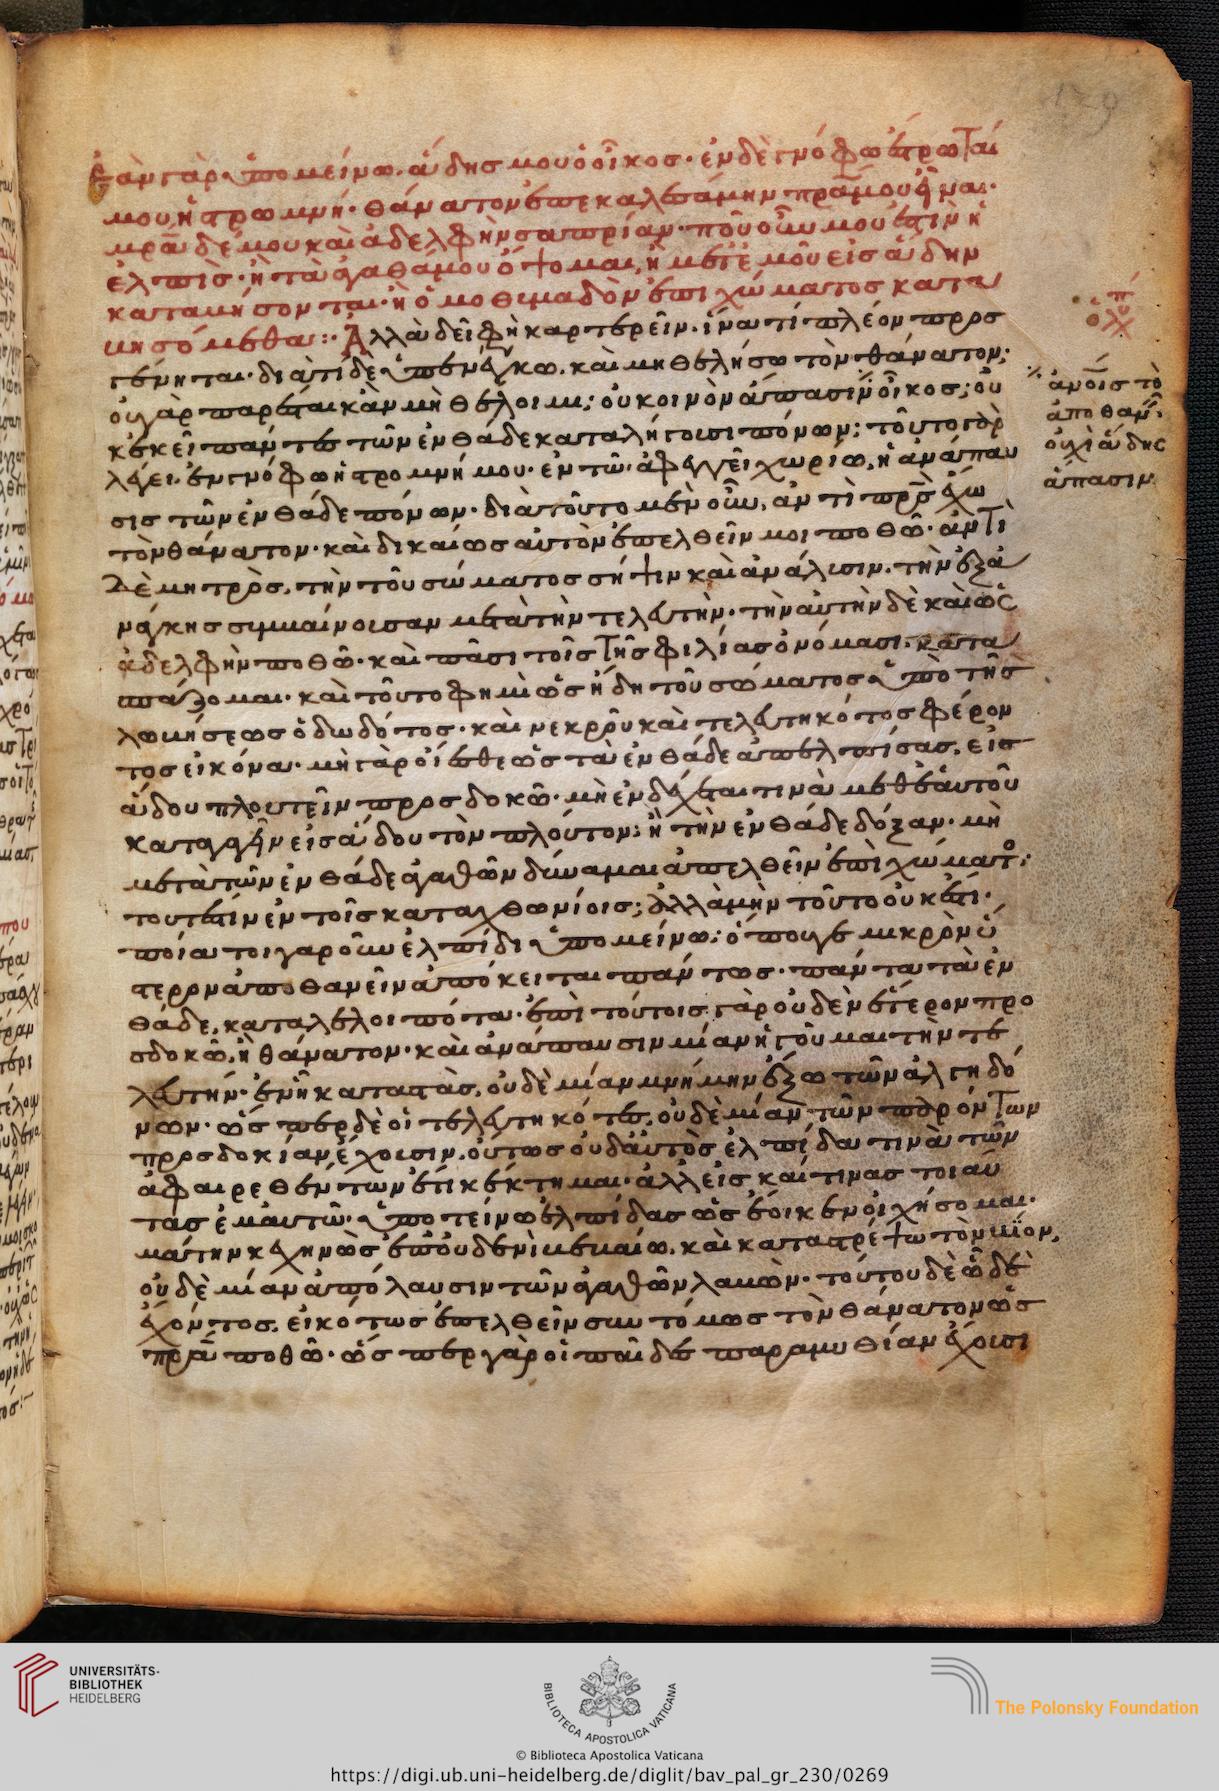 129
ἐὰν γὰρ ὑπομείνω, ἅδης μου ὁ οἶκος· ἐν δὲ γνόφω ἔστρωταί
μου ἡ στρωμνή· θάνατον ἐπεκαλεσάμην πρα μου εἶναι·
μρα δέ μου καὶ ἀδελφὴν σαπρίαν· ποῦ οὖν μου ἐστὶν ἡ
ἐλπίς· ἢ τὰ ἀγαθά μου ὄψομαι, ἢ μετ' ἐμοῦ εἰς ἅδην
καταβήσονται· ἢ ὁμοθυμαδὸν ἐπὶ χώματος κατα
βησόμεθα:· Ἀλλὰ δεῖ φὴ καρτερεῖν. ἵνα τί πλέον προς
γένηται· διατί δὲ ὑπενέγκω. καὶ μὴ θελήσω τὸν θάνατον;
οὐ γὰρ παρέσται κἂν μὴ θέλοιμι; οὐ κοινὸν ἅπασιν οἶκος; οὐ
κἐκεῖ πάντες τῶν ἐνθάδε καταλήγουσι πόνων; τοῦτο γὰρ
λέγει. ἐν γνόφω ἡ στρομνή μου· ἐν τῶ ἀφεγγεῖ χωρίω, ἡ ἀνάπαυ
σις τῶν ἐνθάδε πόνων· διατοῦτο μὲν οὖν, ἀντὶ πρς ἔχω
τὸν θάνατον· καὶ δικαίως αὐτὸν ἐπελθεῖν μοι ποθῶ· ἀντὶ
δὲ μητρὸς, τὴν τοῦ σώματος σῆψιν καὶ ἀνάλυσιν. τὴν ἐξ ἀ
νάγκης συμβαίνουσαν μετὰ τὴν τελευτὴν· τὴν αὐτὴν δὲ καὶ ὡς
ἀδελφὴν ποθῶ· καὶ πᾶσι τοῖς τῆς φιλίας ὀνόμασι. κατα
σπάζομαι· καὶ τοῦτο φημὶ ὡς ἤδη τοῦ σώματος ὑπὸ τῆς
λωβήσεως ὀδωδότος· καὶ νεκροῦ καὶ τελευτηκότος φέρον
τος εἰκόνα· μὴ γὰρ οἴεσθε ὡς τὰ ἐνθάδε ἀπελπίσας, εἰς
ἅδου πλουτεῖν προσδοκῶ· μὴ ἐνδέχεται τινὰ μεθ' ἑαυτοῦ
καταγαγεῖν εἰς ἅδου τὸν πλούτον; ἢ τὴν ἐνθάδε δόξαν· μὴ
μετὰ τῶν ἐνθάδε ἀγαθῶν δύναμαι ἀπελθεῖν ἐπὶ χώματο;
τουτέστιν ἐν τοῖς καταχθωνίοις; ἀλλὰ μὴν τοῦτο οὐκ ἔστι·
ποία τοιγαροῦν ἐλπίδι ὑπομείνω; ὅπουγε μικρὸν ὕ
στερον ἀποθανεῖν ἀπόκειται πάντως· πάντα τὰ ἐν
θάδε, καταλελοιπότα· ἐπὶ τούτοις γὰρ οὐδὲν ἕτερον προ
σδοκῶ, ἢ θάνατον· καὶ ἀνάπαυσιν μίαν ἡγοῦμαι τὴν τε
λευτὴν· ἐν ἧ καταστὰς, οὐδὲ μίαν μνήμην ἕξω τῶν ἀλγηδό
νων· ὥσπερ δὲ οἱ τελευτηκότες, οὐδὲ μίαν τῶν παρόντων
προσδοκίαν ἔχουσιν, οὕτως οὐδ' αὐτὸς ἐλπίδα τινὰ τῶν
ἀφαιρεθέντων ἔτι κέκτημαι· ἀλλ' εἰς καί τινας τοιαύ
τας ἐμαυτῶ ὑποτείνω ἐλπίδας ὡς ἔοικεν οἰχήσομαι·
μάτην κεχηνὼς ἐπ' οὐδενὶ βεβαίω. καὶ καταστρέψω τὸν βίον,
οὐδὲ μίαν ἀπόλαυσιν τῶν ἀγαθῶν λαβὼν· τούτου δὲ ὧδε
ἔχοντος, εἰκότως ἐπελθεῖν συντόμως τὸν θάνατον ὡς
πρα ποθῶ· ὥσπερ γὰρ οἱ παῖδες παραμυθίαν ἔχουσι
ὀλυ
ἀνοῖς τὸ
ἀποθανεῖν
οὐχὶ ἅδης
ἅπασιν
UNIVERSITÄTS-
BIBLIOTHEK
HEIDELBERG
BIBLIOTECA APOSTOLICA VATICANA
The Polonsky Foundation
© Biblioteca Apostolica Vaticana
https://digi.ub.uni-heidelberg.de/diglit/bav_pal_gr_230/0269